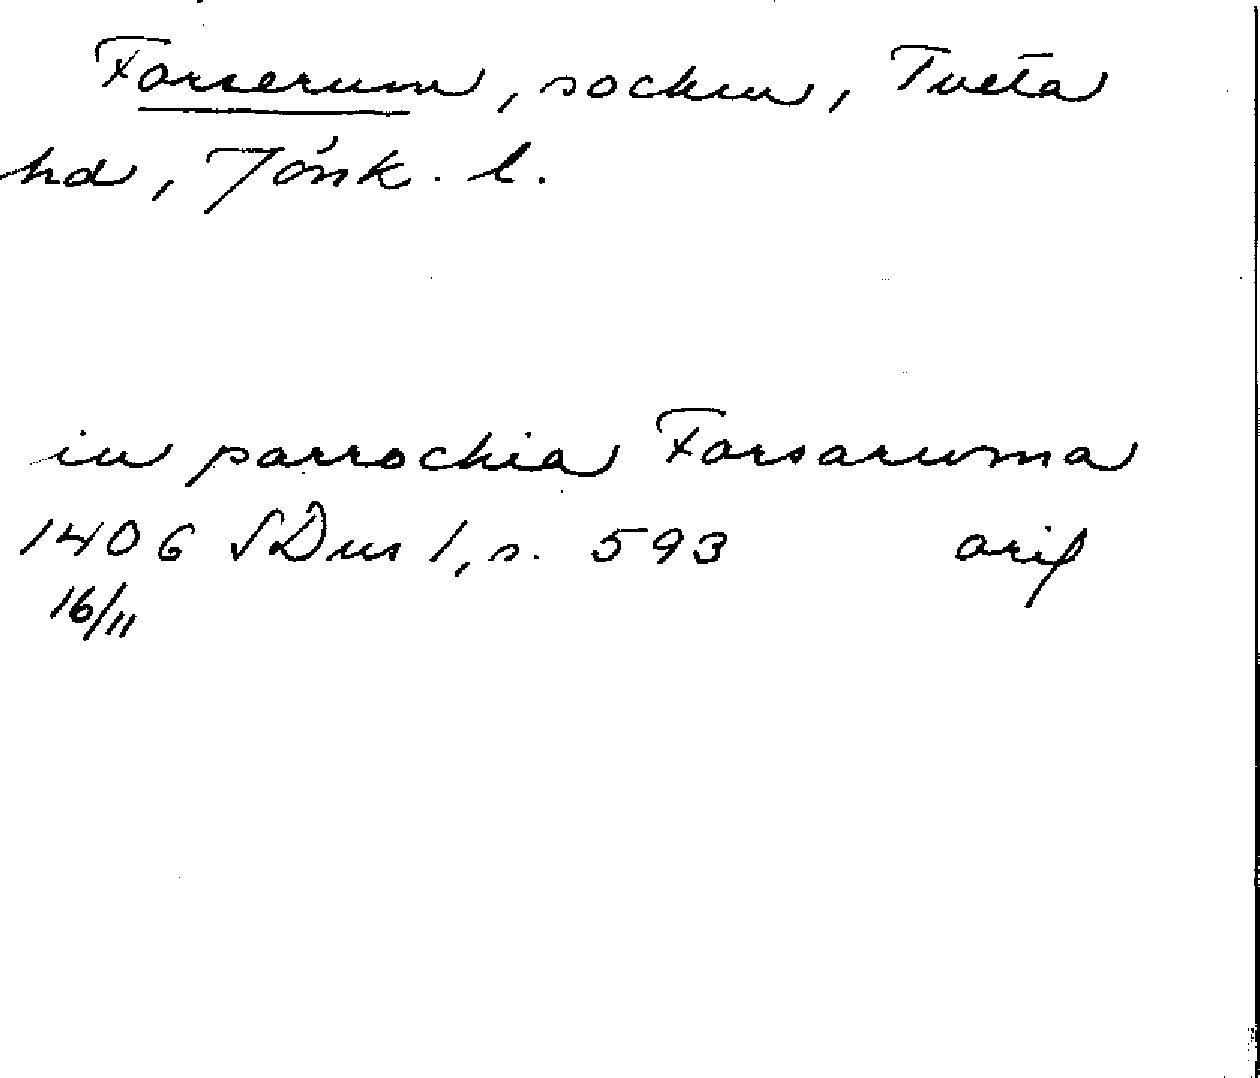 Forserum, socken, Tveta
hd, Jönk. l.
in parrochia Forsaruma
1406 SDns 1, s. 593 orig
16/11